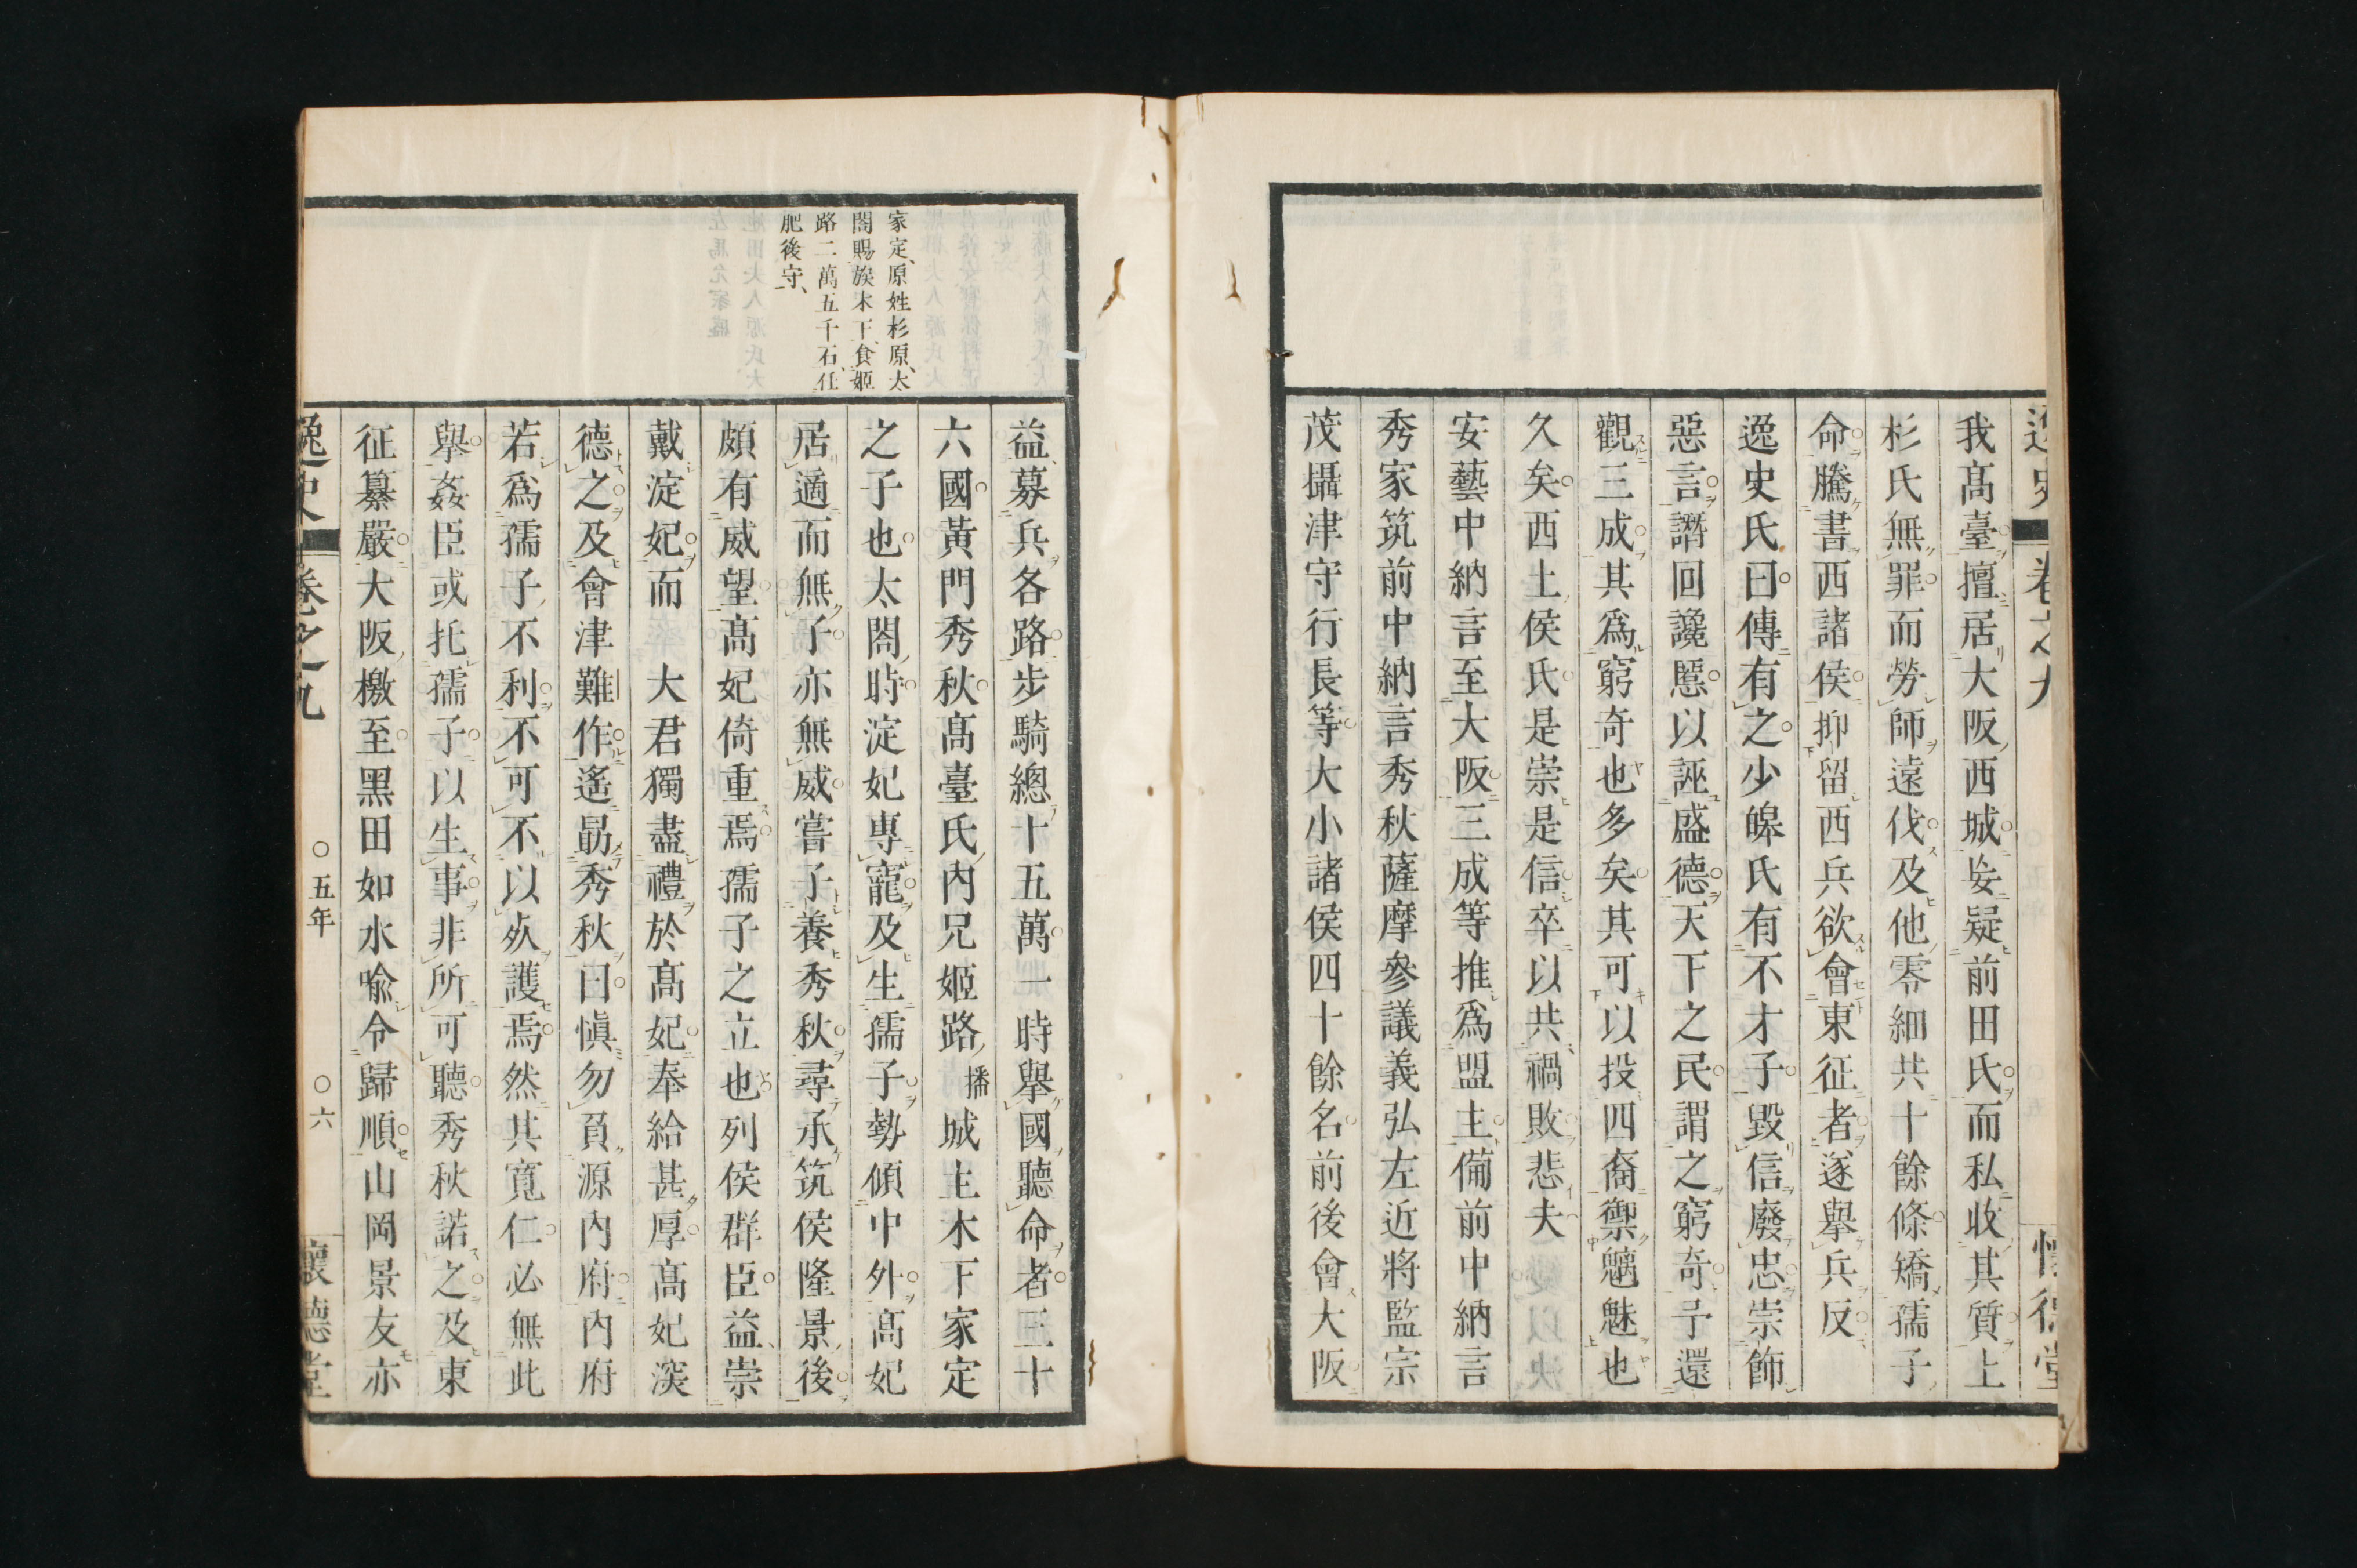 逸史 卷之九 懷德堂
我髙臺擅居大阪西城妄疑前田氏而私收其質上
杉氏無罪而勞師遠伐及他零細共十餘條矯孺子
命騰書西諸侯抑留西兵欲會東征者遂擧兵反
逸史氏曰傳有之少皞氏有不才子毀信廢忠崇飾
惡言譖回讒慝以誣盛德天下之民謂之窮奇予還
觀三成其爲窮奇也多矣其可以投四裔禦魑魅也
久矣西土侯氏是崇是信卒以共禍敗悲夫
安藝中納言至大阪三成等推爲盟主備前中納言
秀家筑前中納言秀秋薩摩參議義弘左近將監宗
茂攝津守行長等大小諸侯四十餘名前後會大阪
家定、原姓杉原、太
閤賜族木下、食姬
路二萬五千石、任
肥後守、
益募兵各路步騎總十五萬一時擧國聽命者三十
六國黃門秀秋髙臺氏內兄姬路播城主木下家定
之子也太閤時淀妃專寵及生孺子勢傾中外髙妃
居適而無子亦無威嘗子養秀秋尋承筑侯隆景後
頗有威望髙妃倚重焉孺子之立也列侯群臣益崇
戴淀妃而 大君獨盡禮於髙妃奉給甚厚髙妃深
德之及會津難作遙勗秀秋曰愼勿負源內府內府
若爲孺子不利不可不以死護焉然其寬仁必無此
擧姦臣或托孺子以生事非所可聽秀秋諾之及東
征纂嚴大阪檄至黑田如水喩令歸順山岡景友亦
逸史 卷之九 ○五年 ○六 懷德堂